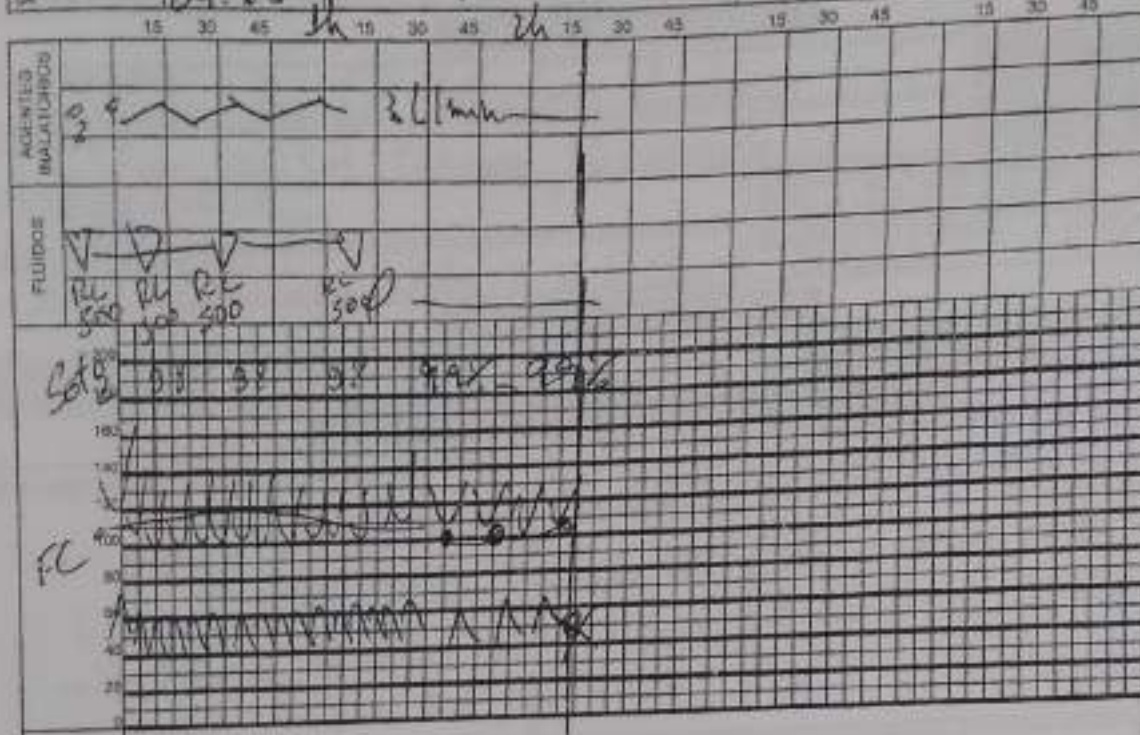 15 30 45 1h 15 30 45 2h 15 30 45 15 30 45 15 30 45
AGENTES INALATÓRIOS
O2 3 L/min
FLUIDOS
RL RL RL RL
500 500 500 500
SatO2 98 98 98 99% 99%
160
140
FC 100
80
60
40
20
0